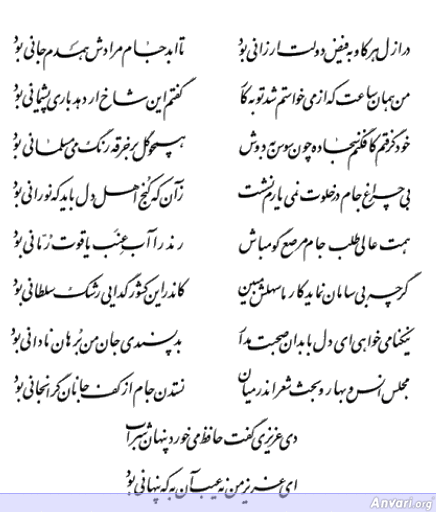 در ازل هر کاو به فیض دولت ارزانی بود تا ابد جام مرادش همدم جانی بود
من همان ساعت که از می خواستم شد توبه کار گفتم این شاخ ار دهد باری پشیمانی بود
خود گرفتم کافکنم سجاده چون سوسن به دوش همچو گل بر خرقه رنگ می مسلمانی بود
بی چراغ جام در خلوت نمی یارم نشست زآن که کُنج اهل دل باید که نورانی بود
همت عالی طلب جام مرصع گو مباش رند را آب عِنَب یاقوت رُمّانی بود
گرچه بی سامان نماید کار ما سهلش مبین کاندر این کشور گدایی رشک سلطانی بود
نیکنامی خواهی ای دل با بدان صحبت مدار بدپسندی جان من بُرهان نادانی بود
مجلس انس و بهار و بحث شعر اندر میان نستدن جام از کف جانان گرانجانی بود
دی عزیزی گفت حافظ می خورد پنهان شراب
ای عزیز من نه عیب آن به که پنهانی بود
Anvari.org